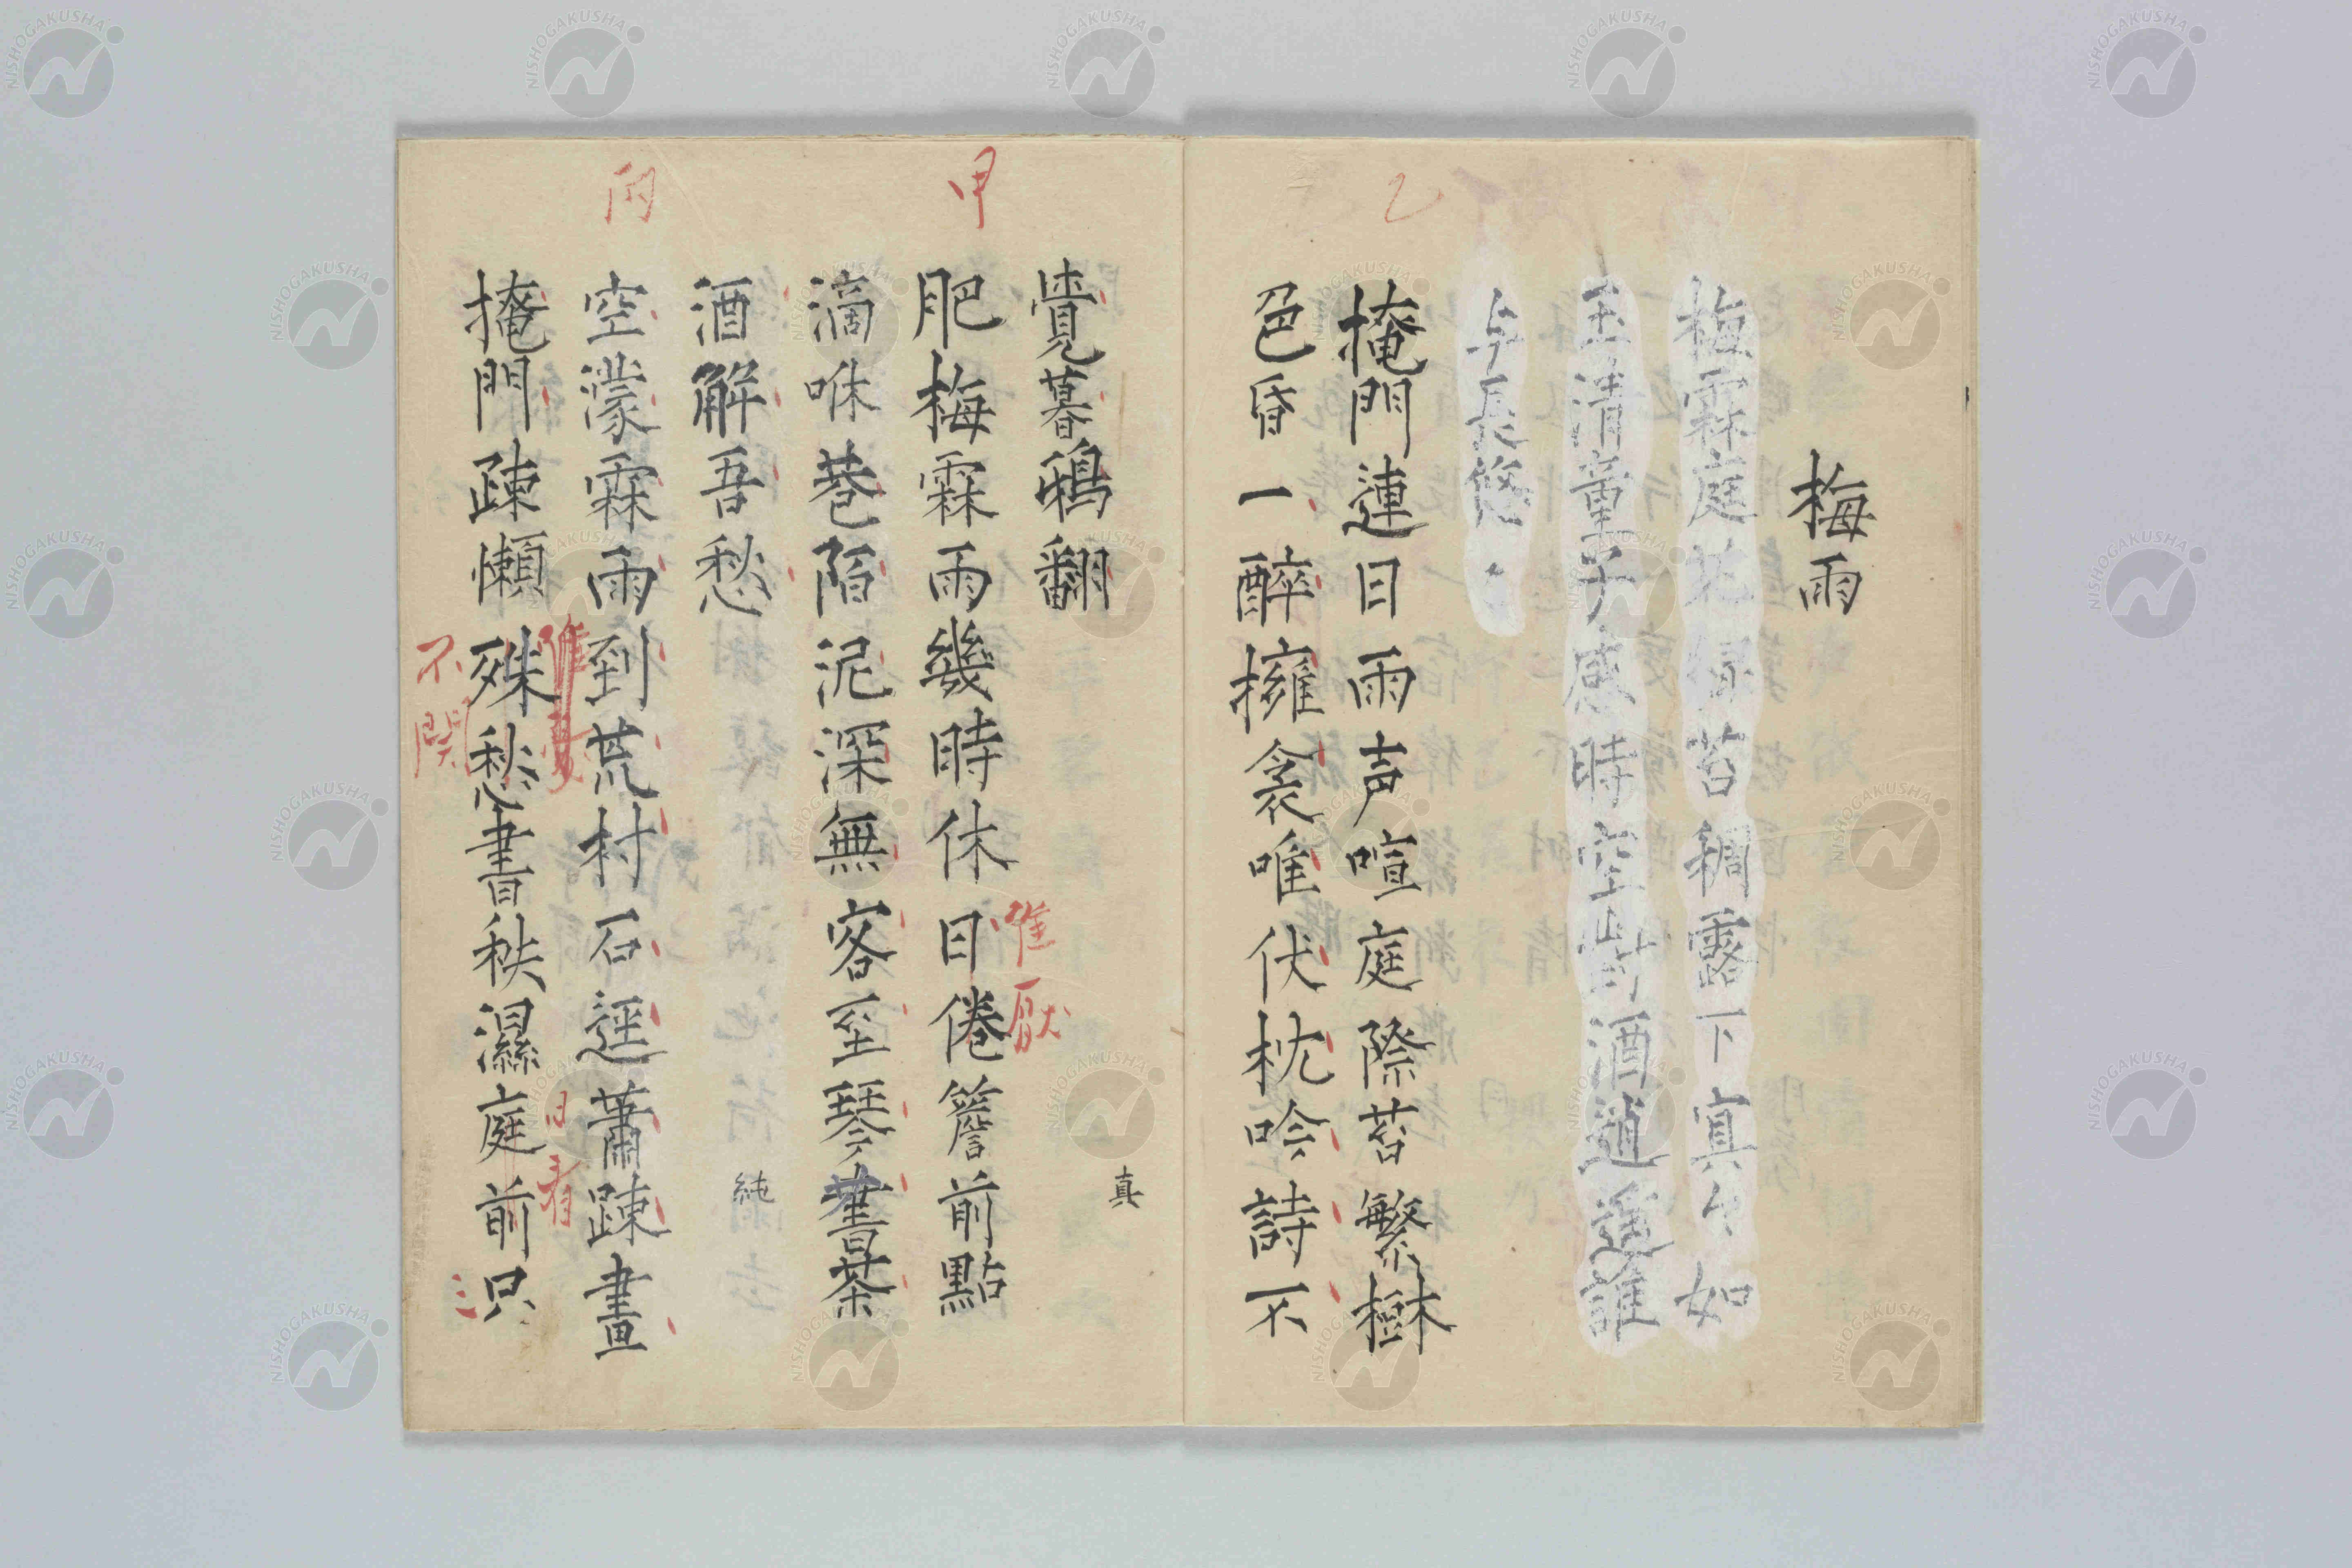 梅雨
梅霖庭花緑苔稠露下真々如
玉清童子感時空
与長悠々
乙
掩門連日雨声喧庭際苔繁樹
色昏一醉擁衾唯伏枕吟詩不
覺暮鴉翻
真
甲
肥梅霖雨幾時休日倦簷前點
惟厭
滴咻巷陌泥深無客至琴書茶
酒解吾愁
純
丙
空濛霖雨到荒村石逕蕭疎晝
掩門疎懶殊愁書秩濕庭前只
不関
日看
NISHOGAKUSHA